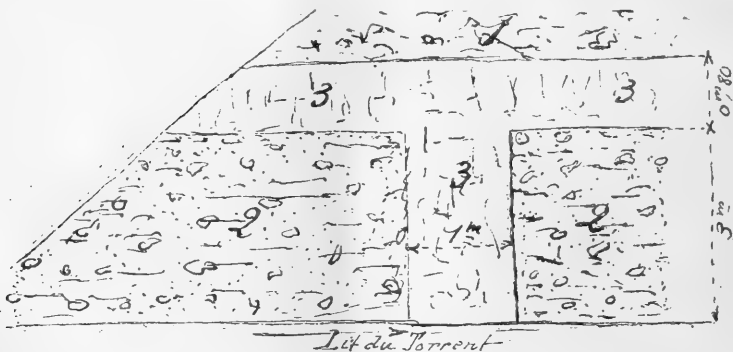 1
3 3
0m,80
3
2 1m 2
3m
Lit du Torrent